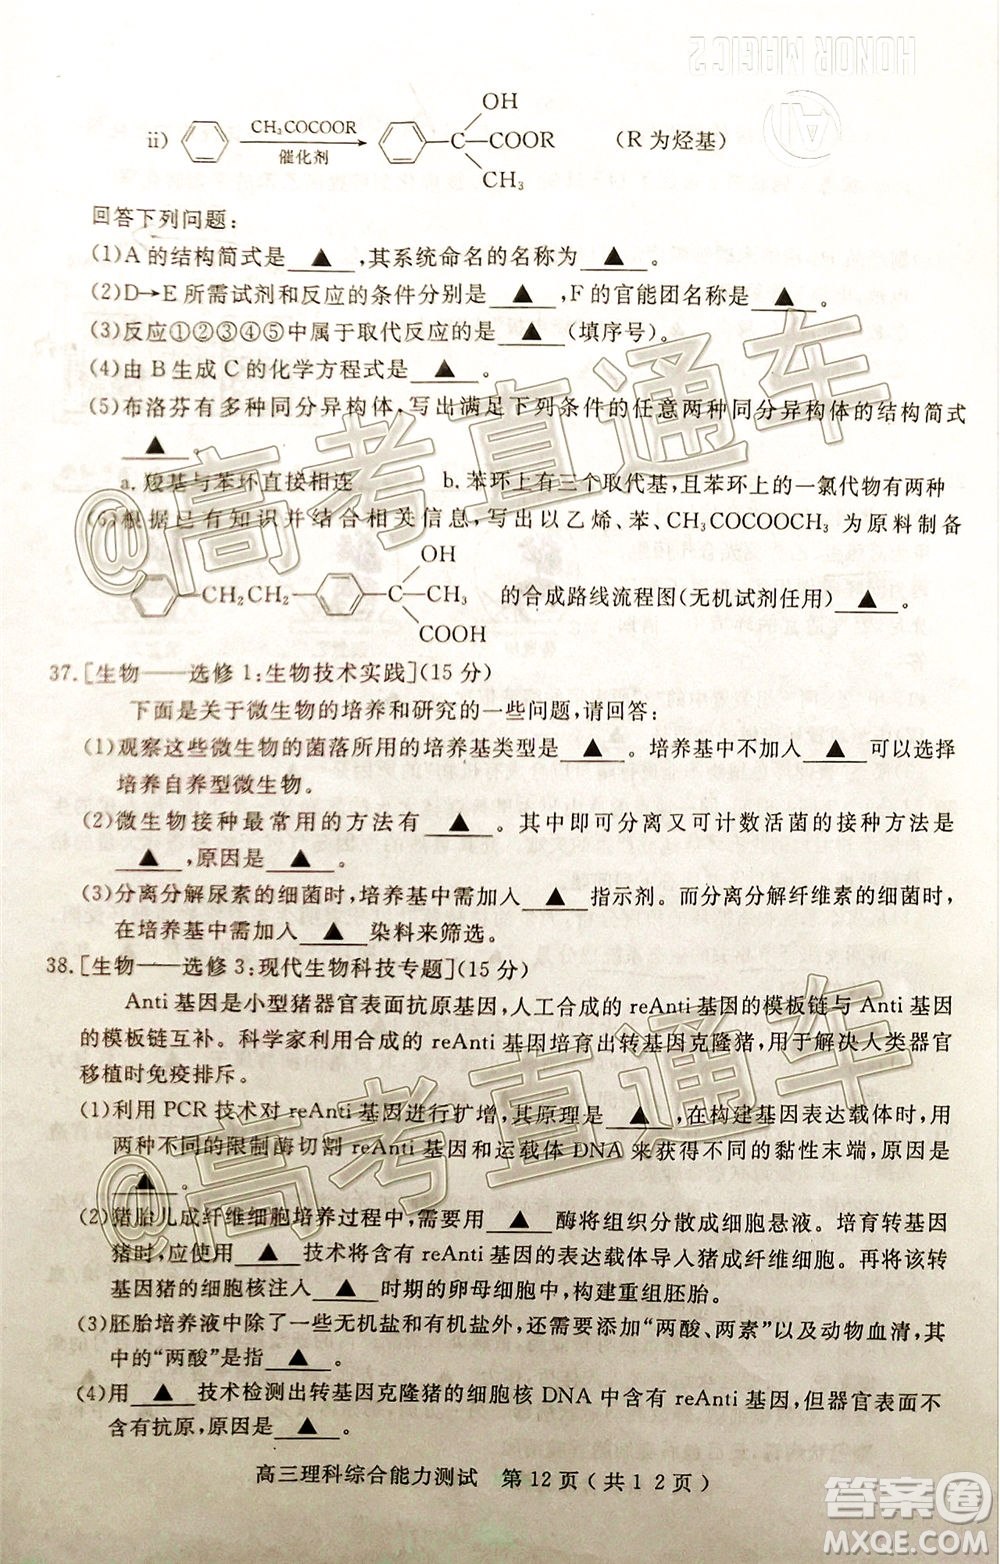 HONOR MAGIC 2
AI
OH
ii) CH₃COCOOR C—COOR (R 为烃基)
催化剂
CH₃
回答下列问题:
(1)A 的结构简式是 ▲ ,其系统命名的名称为 ▲ 。
(2)D→E 所需试剂和反应的条件分别是 ▲ ,F 的官能团名称是 ▲ 。
(3)反应①②③④⑤中属于取代反应的是 ▲ (填序号)。
(4)由 B 生成 C 的化学方程式是 ▲ 。
(5)布洛芬有多种同分异构体,写出满足下列条件的任意两种同分异构体的结构简式
▲
a. 羧基与苯环直接相连 b. 苯环上有三个取代基,且苯环上的一氯代物有两种
(6)根据已有知识并结合相关信息,写出以乙烯、苯、CH₃COCOOCH₃ 为原料制备
OH
CH₂CH₂ C—CH₃ 的合成路线流程图(无机试剂任用) ▲ 。
COOH
37.[生物——选修 1:生物技术实践](15 分)
下面是关于微生物的培养和研究的一些问题,请回答:
(1)观察这些微生物的菌落所用的培养基类型是 ▲ 。培养基中不加入 ▲ 可以选择
培养自养型微生物。
(2)微生物接种最常用的方法有 ▲ 。其中即可分离又可计数活菌的接种方法是
▲ ,原因是 ▲ 。
(3)分离分解尿素的细菌时,培养基中需加入 ▲ 指示剂。而分离分解纤维素的细菌时,
在培养基中需加入 ▲ 染料来筛选。
38.[生物——选修 3:现代生物科技专题](15 分)
Anti 基因是小型猪器官表面抗原基因,人工合成的 reAnti 基因的模板链与 Anti 基因
的模板链互补。科学家利用合成的 reAnti 基因培育出转基因克隆猪,用于解决人类器官
移植时免疫排斥。
(1)利用 PCR 技术对 reAnti 基因进行扩增,其原理是 ▲ ,在构建基因表达载体时,用
两种不同的限制酶切割 reAnti 基因和运载体 DNA 来获得不同的黏性末端,原因是
▲ 。
(2)猪胎儿成纤维细胞培养过程中,需要用 ▲ 酶将组织分散成细胞悬液。培育转基因
猪时,应使用 ▲ 技术将含有 reAnti 基因的表达载体导入猪成纤维细胞。再将该转
基因猪的细胞核注入 ▲ 时期的卵母细胞,构建重组胚胎。
(3)胚胎培养液中除了一些无机盐和有机盐外,还需要添加“两酸、两素”以及动物血清,其
中的“两酸”是指 ▲ 。
(4)用 ▲ 技术检测出转基因克隆猪的细胞核 DNA 中含有 reAnti 基因,但器官表面不
含有抗原,原因是 ▲ 。
高三理科综合能力测试 第 12 页(共 1 2 页)
@高考直通车
@高考直通车
答案圈
MXQE.COM